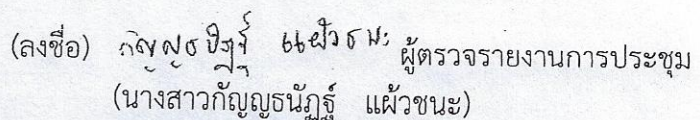 (ลงชื่อ) กัญญธนัฏฐ์ แผ้วชนะ ผู้ตรวจรายงานการประชุม
(นางสาวกัญญธนัฏฐ์ แผ้วชนะ)